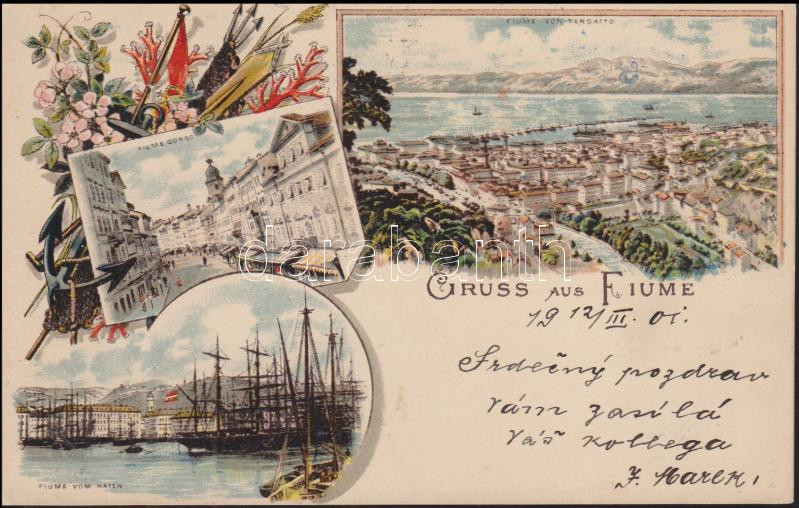 FIUME VON TERSATTO
FIUME CORSO
darabanth
GRUSS AUS FIUME
19 12/III. 01.
Srdečný pozdrav
vám zasílá
váš kollega
J. Marek,
FIUME VOM HAFEN